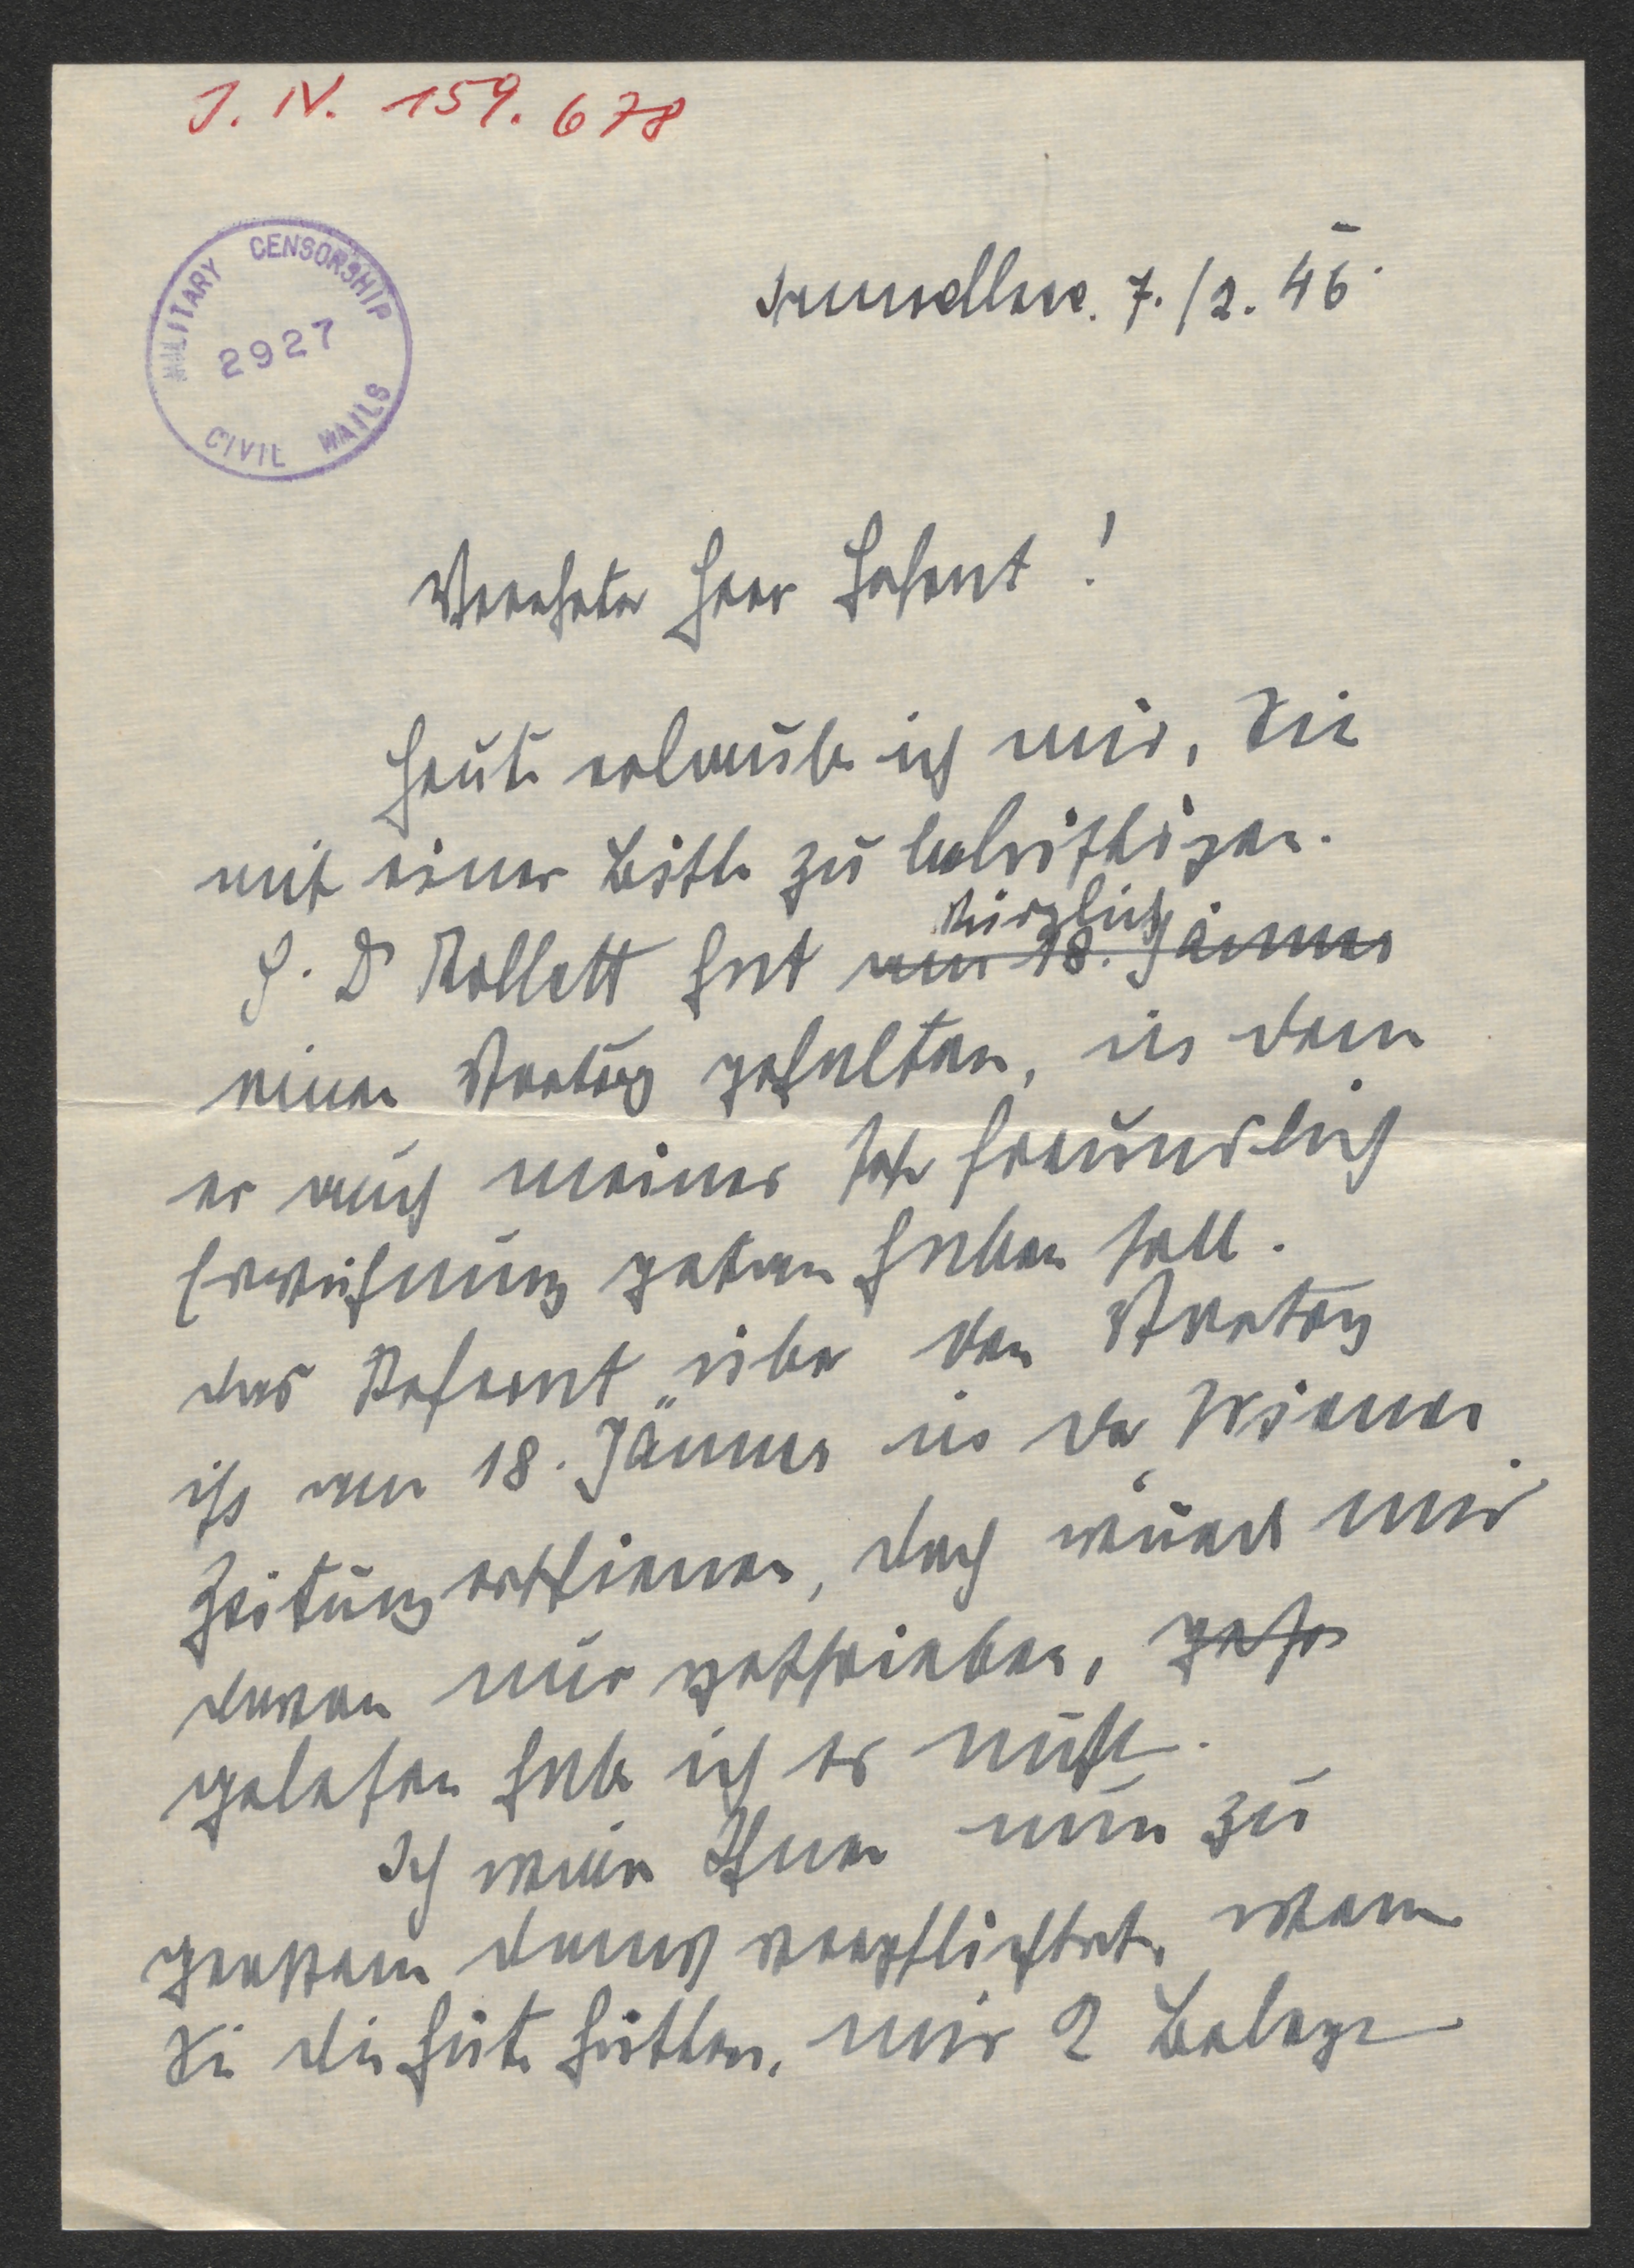 J. N. 159.678
MILITARY CENSORSHIP
2927
CIVIL MAILS
Grundlsee. 7./2. 46.
Verehrter Herr Hofrat!
Heute erlaube ich mir, Sie
mit einer Bitte zu belästigen.
kürzlich
H. Dr Rollett hat am 18. Jänner
einen Vortrag gehalten, in dem
er auch meiner sehr freundlich
Erwähnung getan haben soll.
das Referat über den Vortrag
ist am 18. Jänner in der Wiener
Zeitung erschienen, doch wurde mir
davon nur geschrieben,
gelesen habe ich es nicht.
Ich wäre Ihnen nun zu
grossem Dank verpflichtet, wenn
Sie die Güte hätten, mir 2 Belege